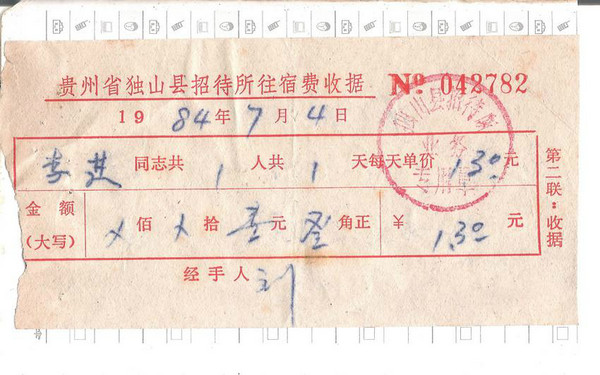 贵州省独山县招待所住宿费收据 № 042782
1984年7月4日
李 同志共1人共1天每天单价1.30元
金额(大写) ×佰×拾壹元叁角正 ¥1.30元
经手人 刘
第二联:收据
独山县招待所